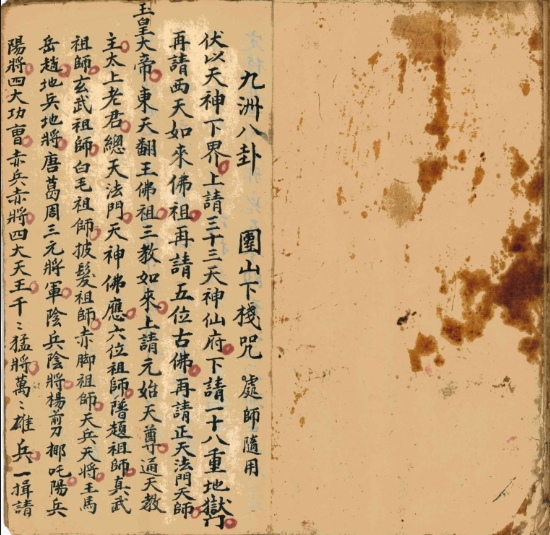 九洲八卦 團山下棧咒 處師隨用
伏以天神下界上請三十三天神仙府下請一十八重地獄門
再請西天如來佛祖再請五位古佛再請正天法門天師
玉皇大帝東天翻王佛祖三教如來上請元始天尊通天教
主太上老君總天法門天神佛應六位祖師隨趙祖師真武
祖師玄武祖師白毛祖師披髮祖師赤脚祖師天兵天將王馬
岳趙地兵地將唐葛周三元將軍陰兵陰將楊前刀挪吒陽兵
陽將四大功曹赤兵赤將四大天王千〻猛將萬〻雄兵一揖請